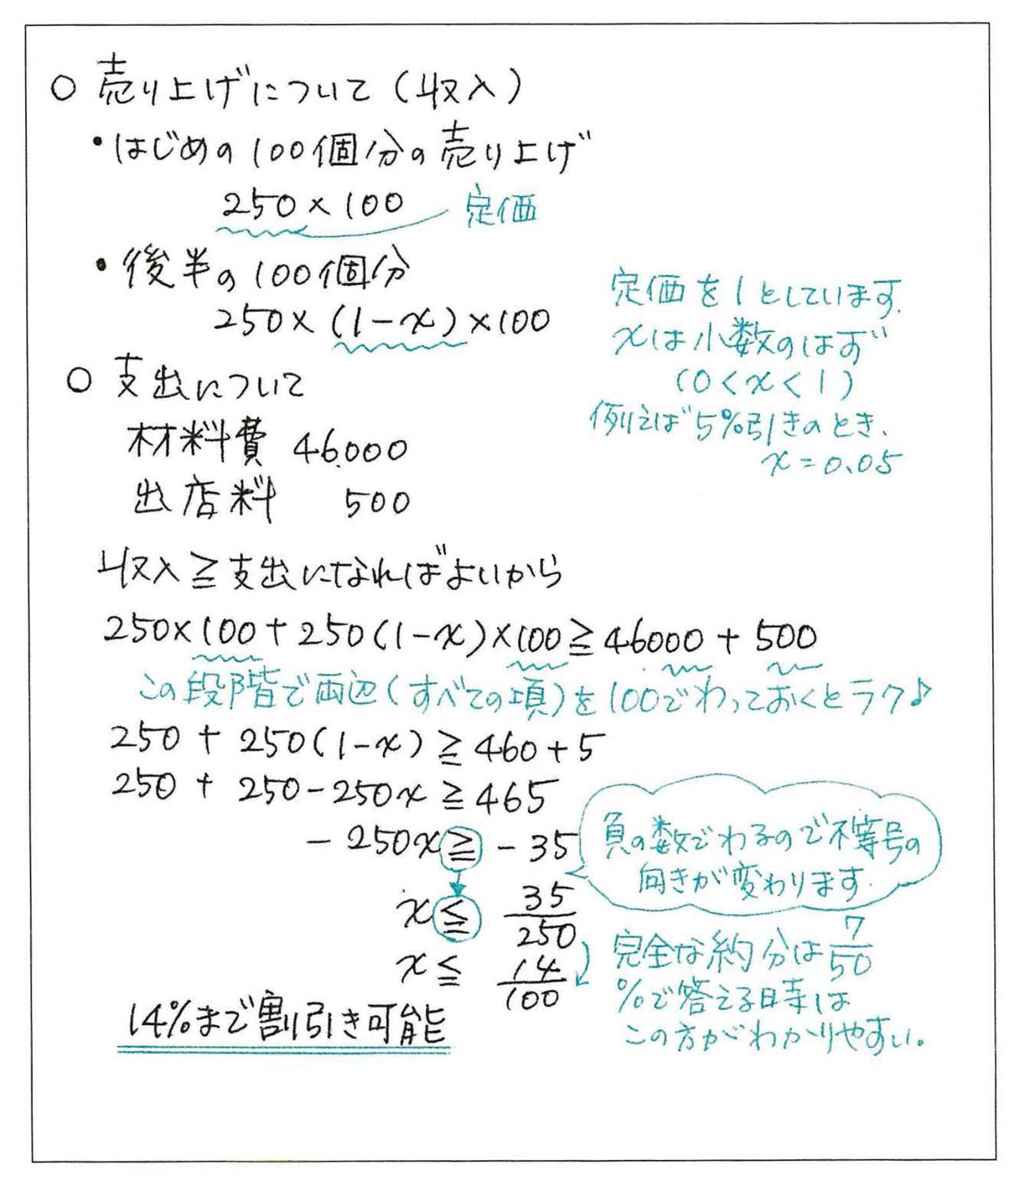 ○ 売り上げについて(収入)
・はじめの100個分の売り上げ
250×100 定価
・後半の100個分
250×(1-x)×100
定価を1としています。
xは小数のはず
(0<x<1)
例えば5%引きのとき、
x=0.05
○ 支出について
材料費 46000
出店料 500
収入≧支出になればよいから
250×100+250(1-x)×100≧46000+500
この段階で両辺(すべての項)を100でわっておくとラク♪
250+250(1-x)≧460+5
250+250-250x≧465
-250x≧-35
負の数でわるので不等号の
向きが変わります。
x≦35/250
x≦14/100
完全な約分は7/50
%で答える時は
この方がわかりやすい。
14%まで割引き可能